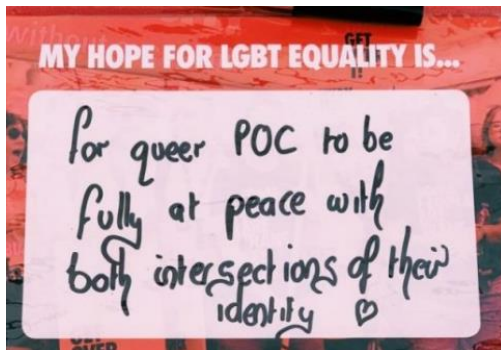 without
GET
MY HOPE FOR LGBT EQUALITY IS...
for queer POC to be
fully at peace with
both intersections of their
identity ♡
GET
OVER